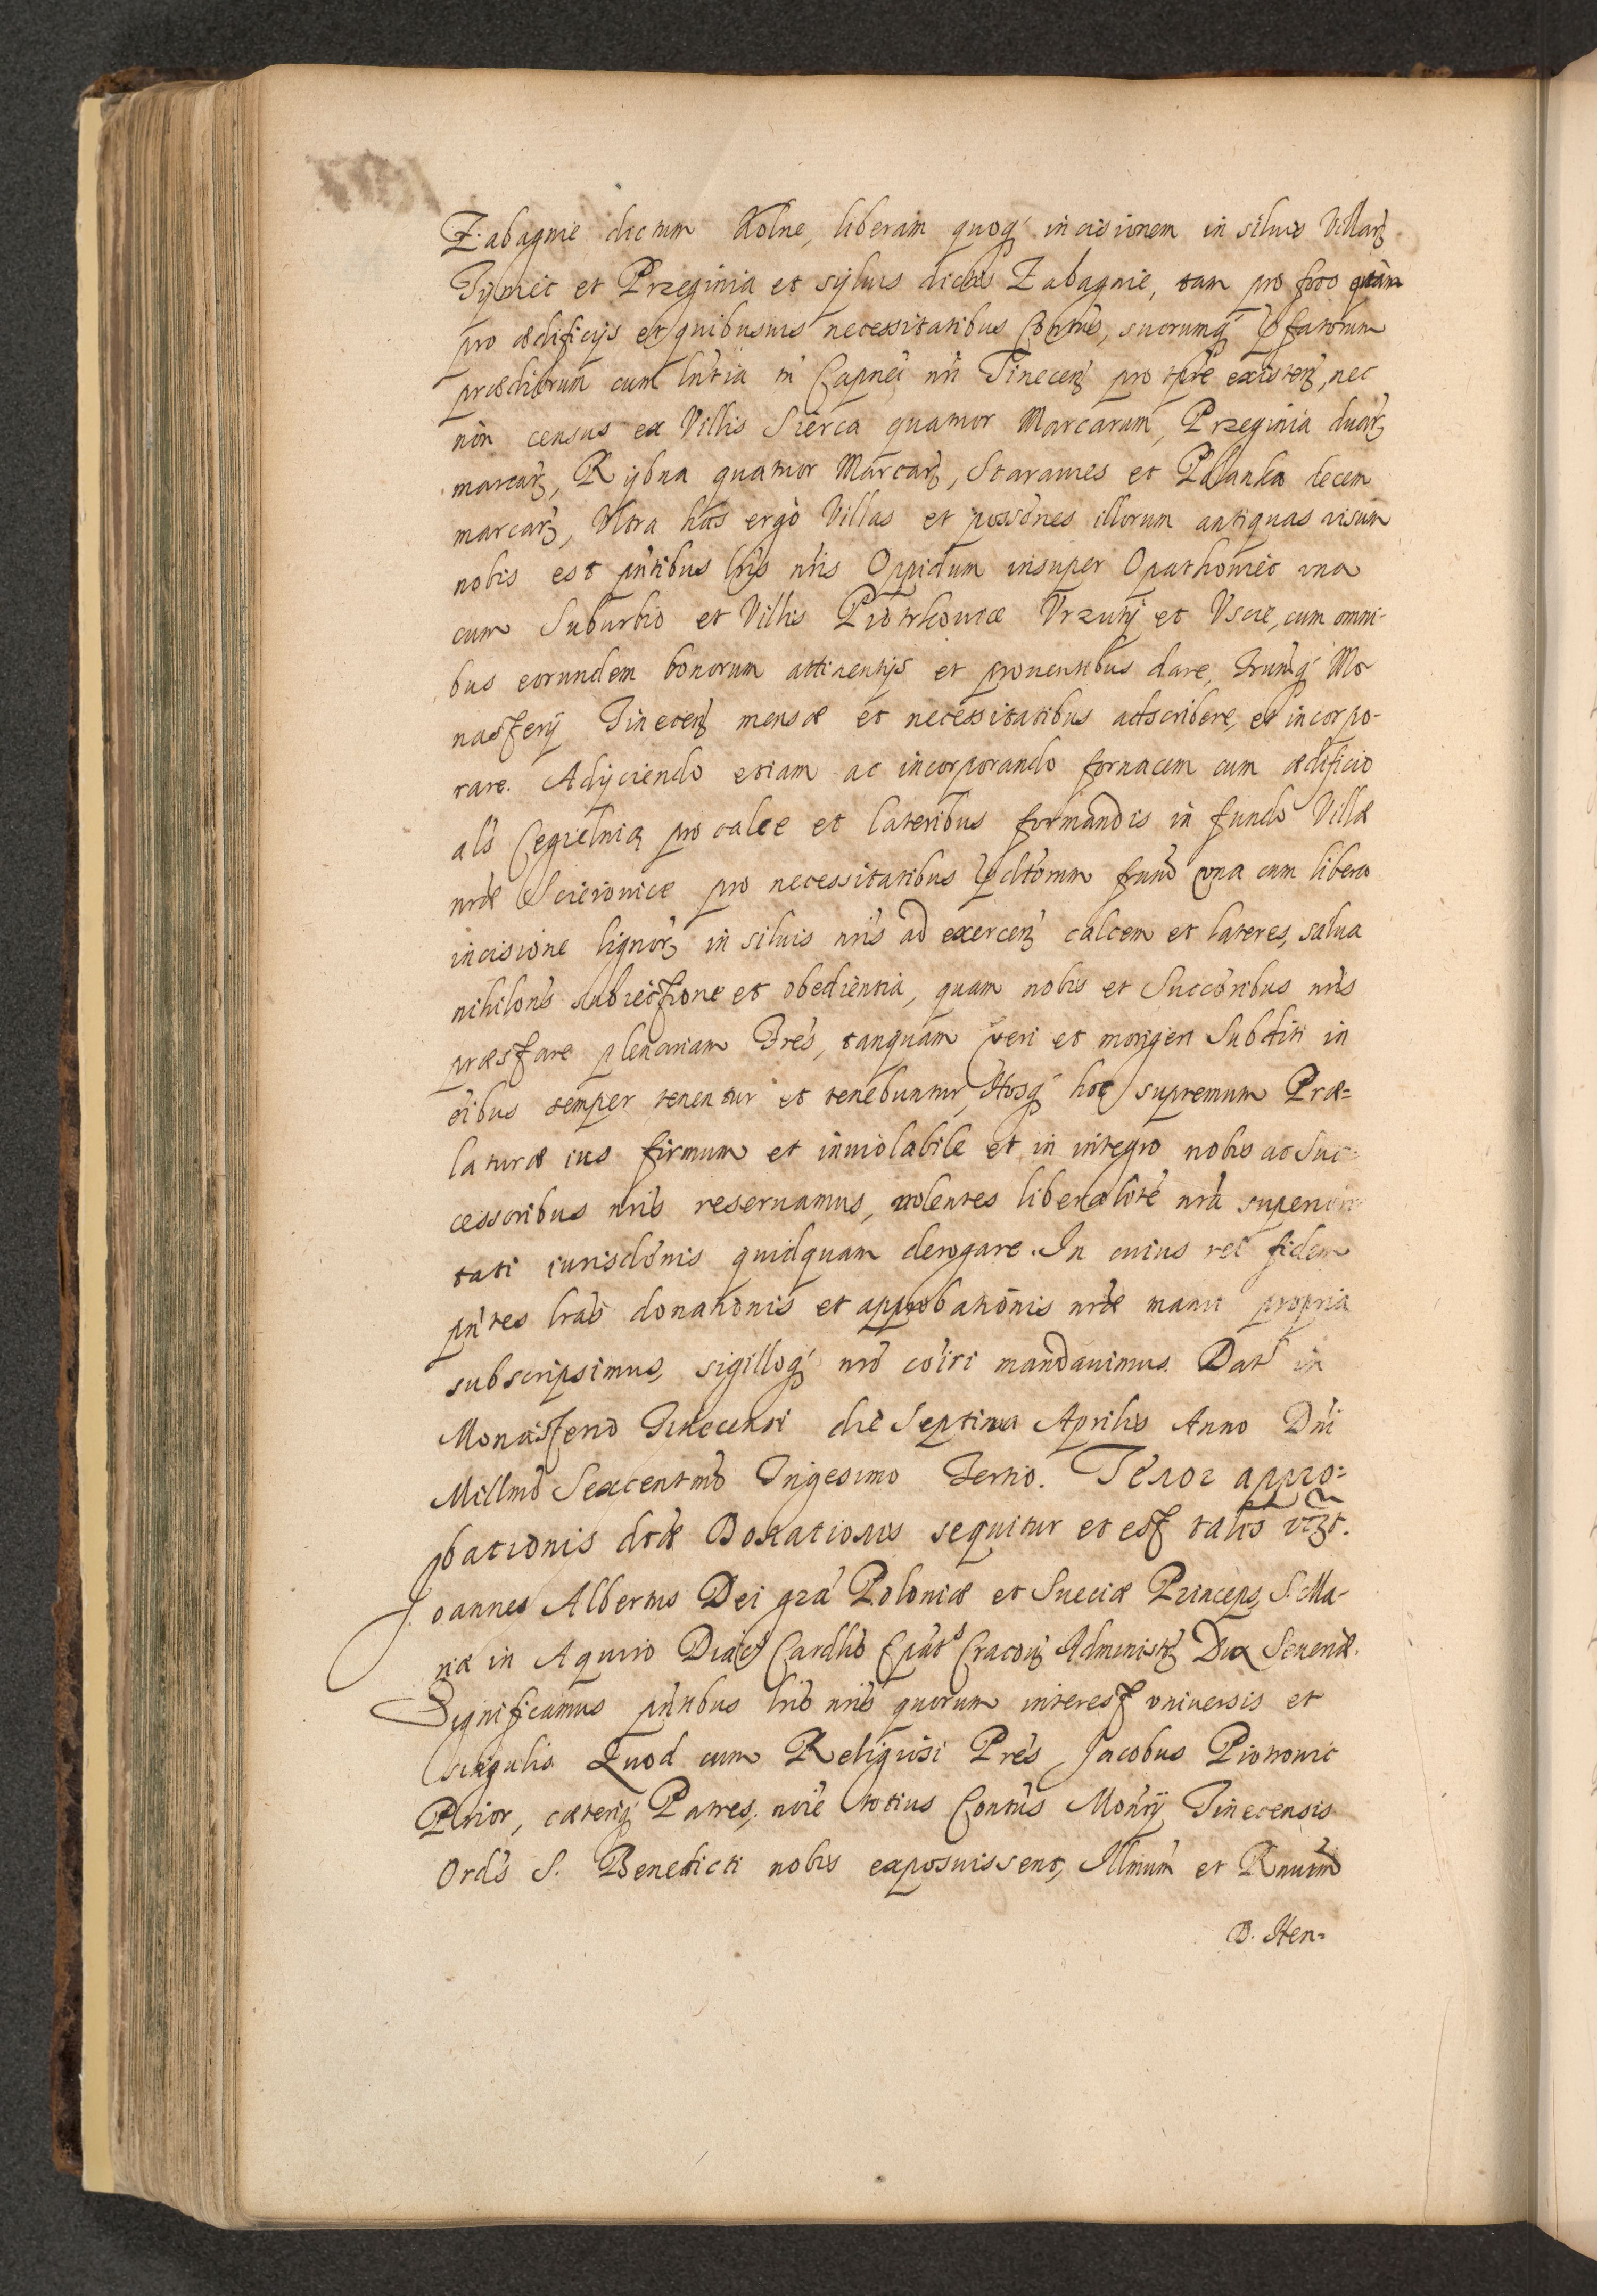 Zabagnie dictum Kolne, liberam quoq́ incisionem in siluis Villarʒ
Tyniec et Przeginia et syluis dictis Zabagnie, tam pro foco quàm
pro ædificijs et quibusuis necessitatibus Contus, suorumq́ pfatorum
prædiorum cum lntia tn̄ Capnei nr̄i Tinecenʒ pro tpre existenʒ, nec
non census ex Villis Sierca quatuor Marcarum, Przeginia duarʒ
marcarʒ, Rybna quatuor Marcarʒ, Starawies et Polanka decem
marcarʒ, Vltra has ergò Villas et possnes illorum antiquas visum
nobis est pn̄tibus lrīs nr̄is Oppidum insuper Opathowiec una
cum Suburbio et Villis Piotrkowice Vrzuty et Vscie, cum omni-
bus eorundem bonorum attinentijs et prouentibus dare, Frumq́ Mo
nasterij Tinecenʒ mensæ et necessitatibus adscribere, et incorpo-
rare. Adijciendo etiam ac incorporando fornacem cum ædificio
als Cegielnią pro calce et lateribus formandis in fundo Villæ
nræ Scieiowice pro necessitatibus pdtorum frum una cum libera
incisione lignorʒ in siluis nr̄is ad exercenʒ calcem et lateres, salua
nihilons subiectione et obedientia, quam nobis et Succoribus nr̄is
præstare plenariam Frēs, tanquam veri et morigeri Subditi in
oībus semper tenentur et tenebuntur, Hosq́ hoc supremum Præ=
laturæ ius firmum et inuiolabile et in integro nobis ac Suc=
cessoribus nr̄is reseruamus, nolentes liberalitē nr̄a superiori
tati iurisdōnis quidquam derogare. In cuius rei fidem
pn̄tes lrās donationis et approbationis nræ manu propria
subscripsimus, sigilloq́ nr̄o coīri mandauimus. Dat in
Monasterio Tinecensi die Septima Aprilis Anno Dn̄i
Millmo Sexcentmo Trigesimo Tertio. Tenor appro=
bationis dtæ Donationis sequitur et est talis vʒt.
Joannes Albertus Dei grā Poloniæ et Sueciæ Princeps, S. Ma-
riæ in Aquiro Diac Cardlis Epatˢ Cracouʒ Administʒ Dux Seueriæ.
Significamus pn̄tibus lrīs nr̄is quorum interest vniuersis et
singulis Quod cum Religiosi Prēs Jacobus Piotrowic
Prior, cæteriq́ Patres, noīe totius Contus Monrij Tinecensis
Ordˢ S. Benedicti nobis exposuissent, Illmum et Rndum
D. Hen=